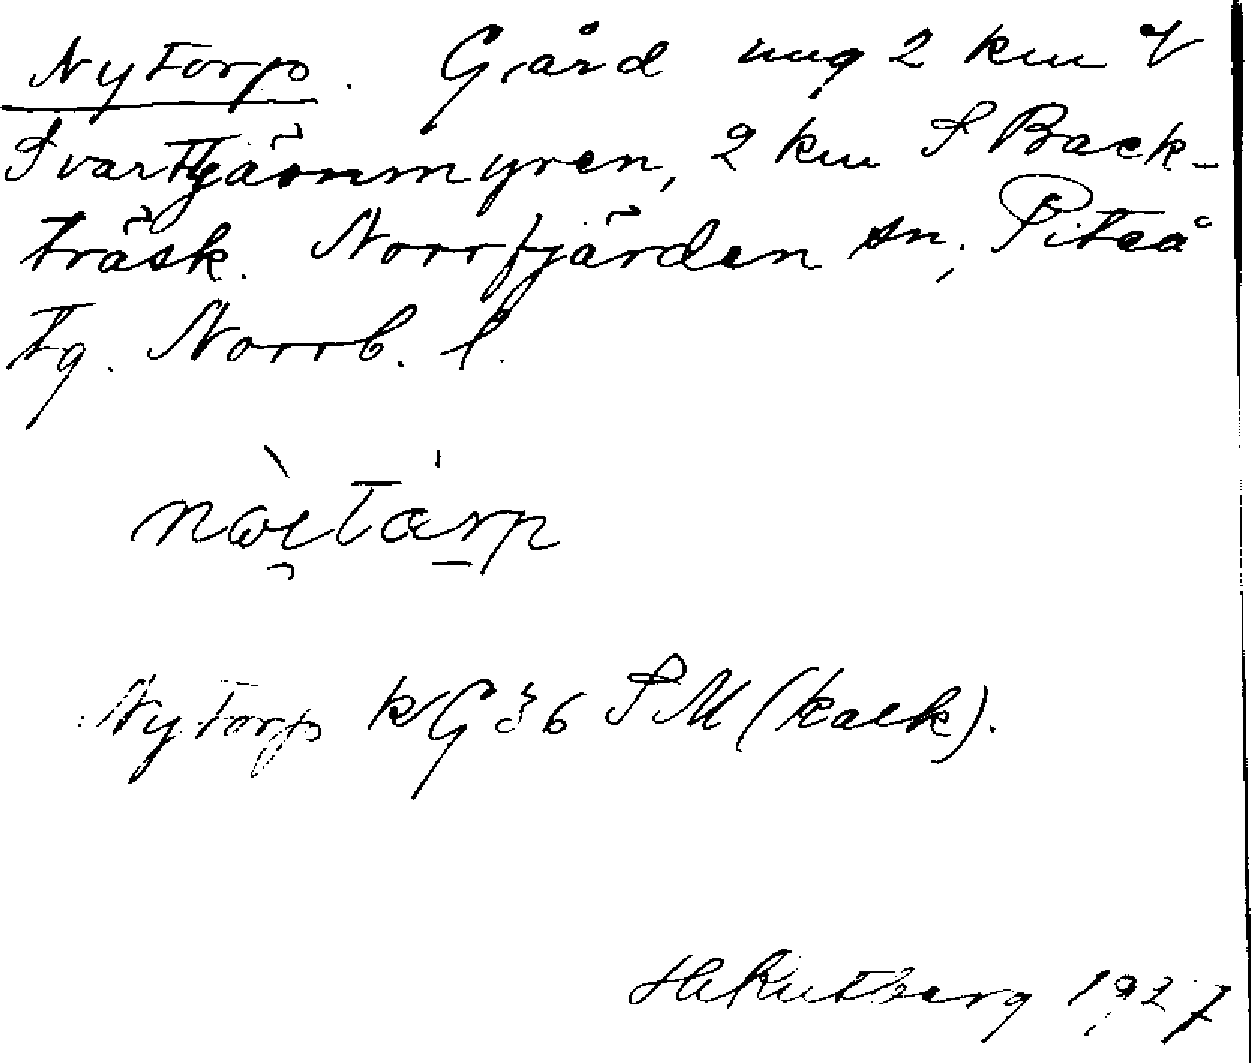 Nytorp. Gård ung 2 km V
Svarttjärnmyren, 2 km S Back-
träsk. Norrfjärden sn, Piteå
tg. Norrb. l.
Nytorp kG 36 SM (kack).
H Rutberg 1927